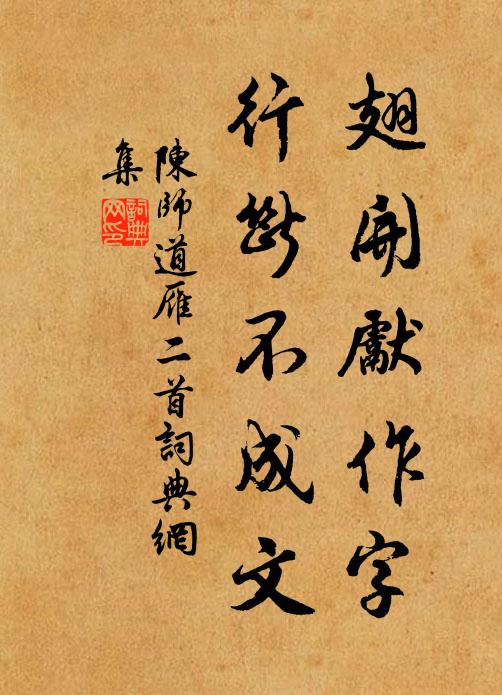 翅開獻作字
行斷不成文
陳師道雁二首詞典網
集
詞典网印